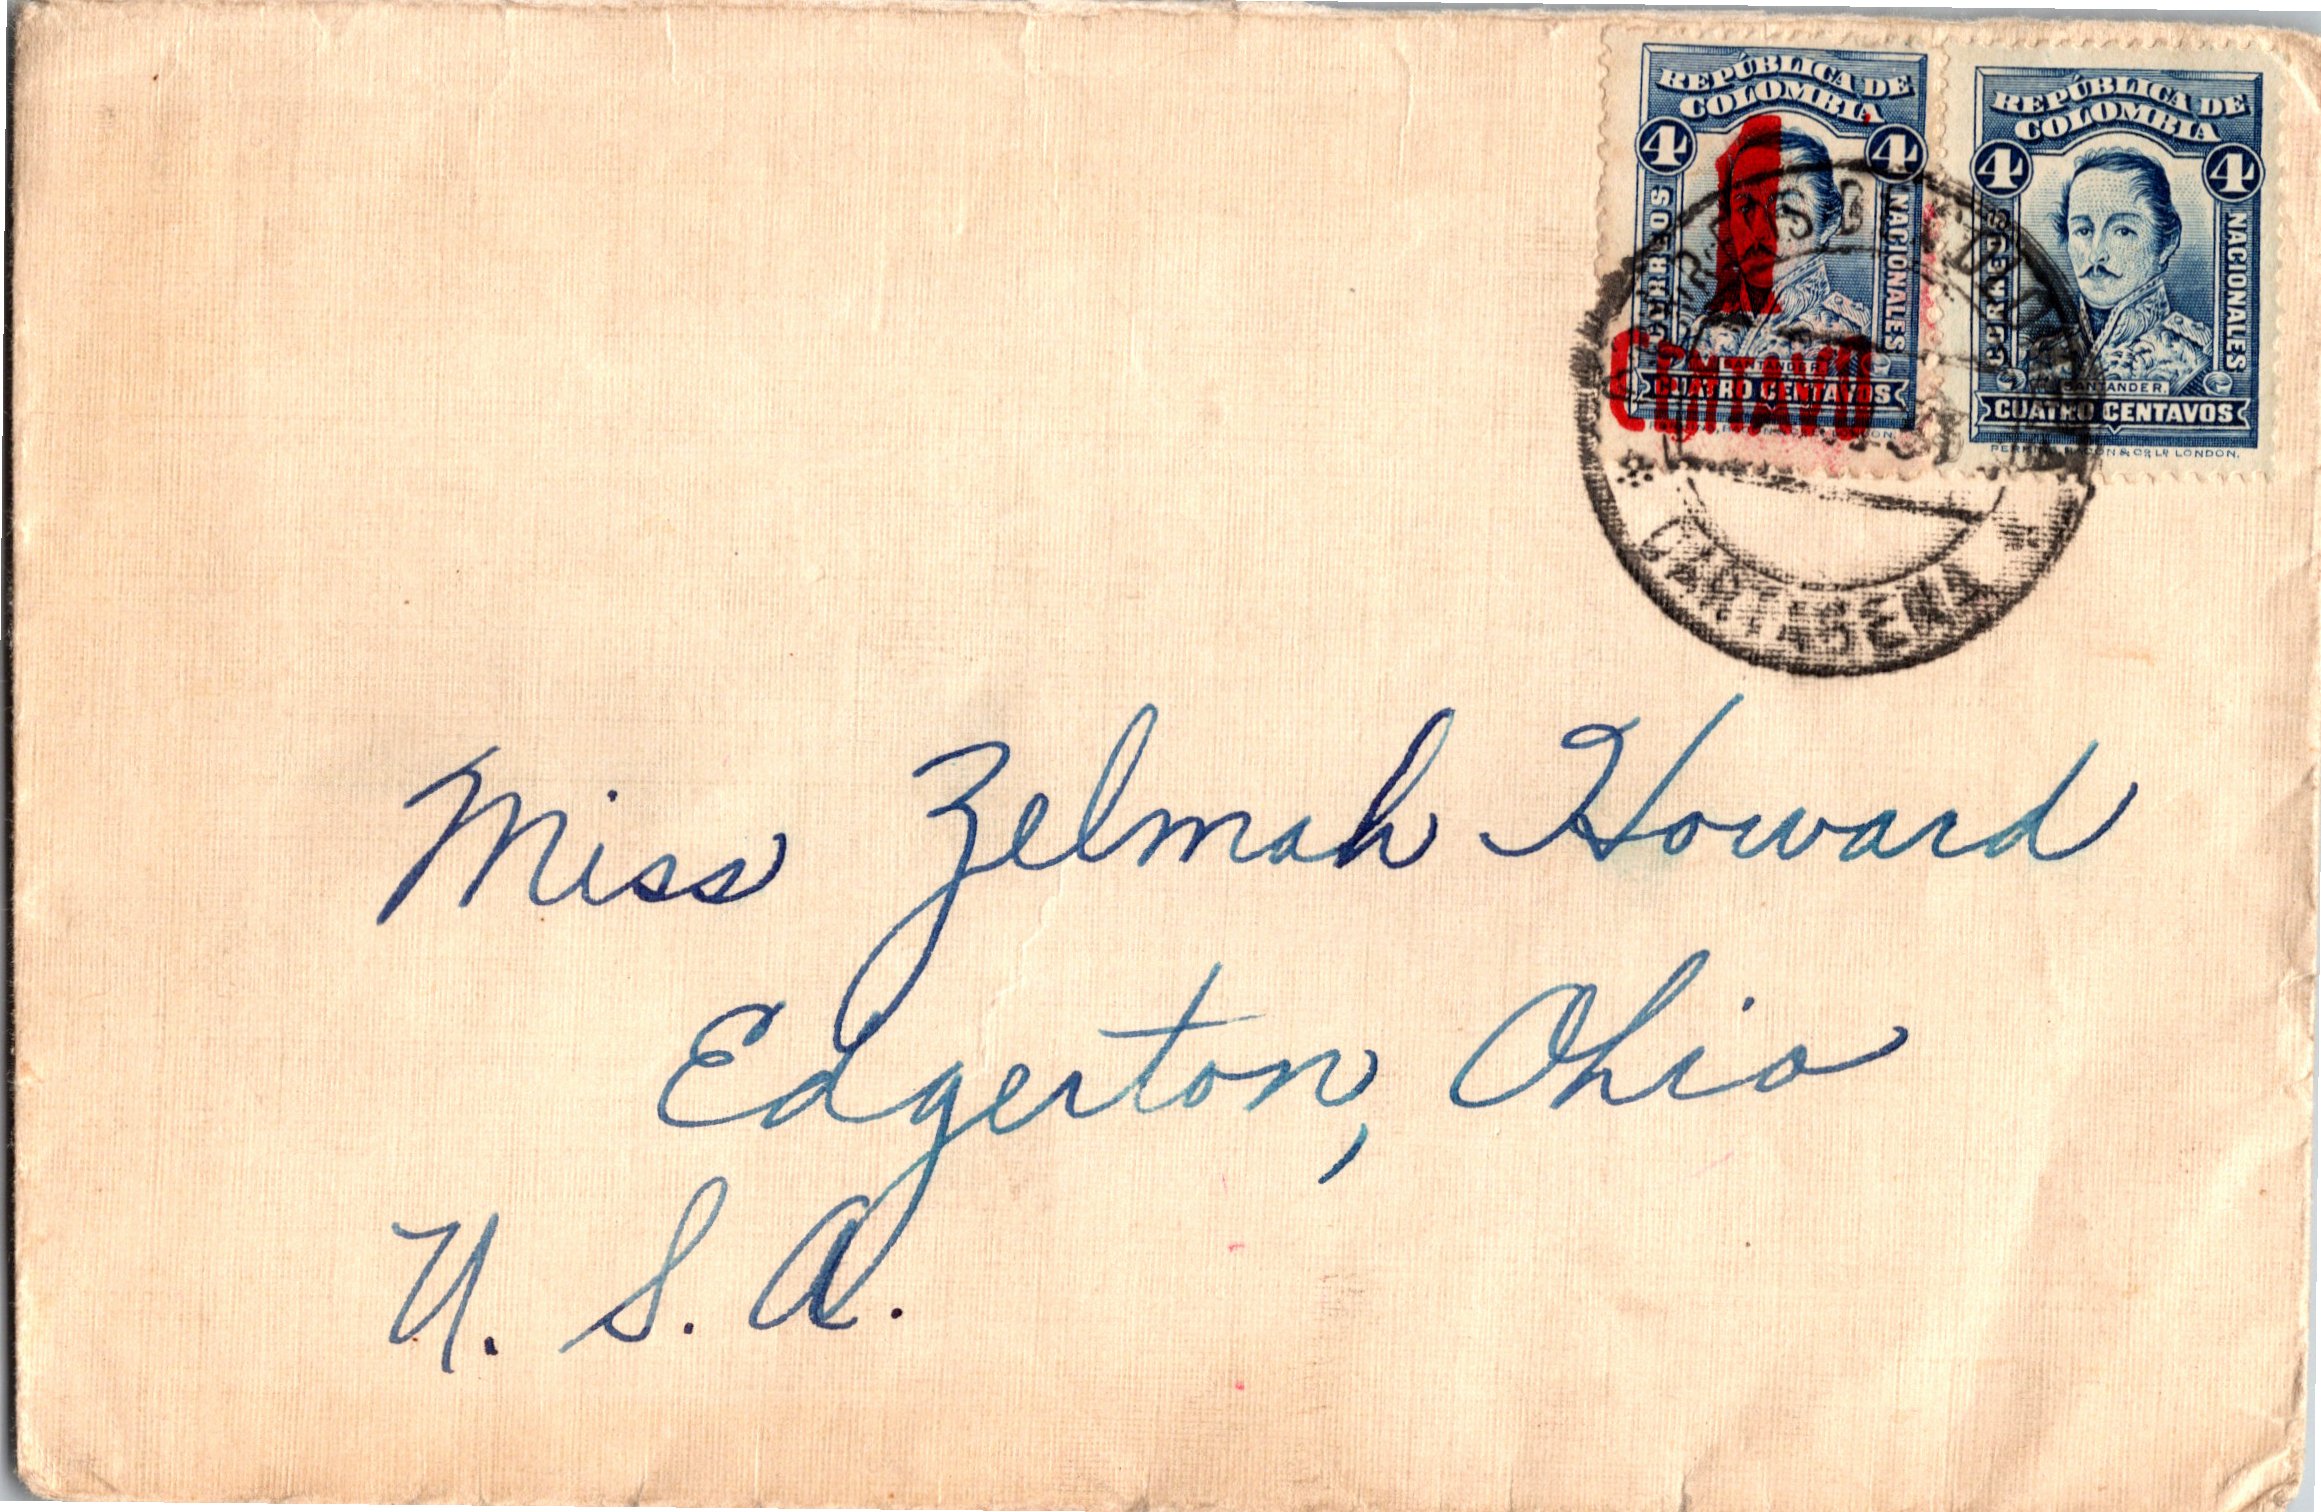 REPÚBLICA DE
COLOMBIA
4 4
CORREOS
NACIONALES
SANTANDER
CUATRO CENTAVOS
1
CENTAVO
REPÚBLICA DE
COLOMBIA
4 4
CORREOS
NACIONALES
SANTANDER.
CUATRO CENTAVOS
PERKINS, BACON & CO LD LONDON.
CARTAGENA
Miss Zelmah Howard
Edgerton, Ohio
U. S. A.